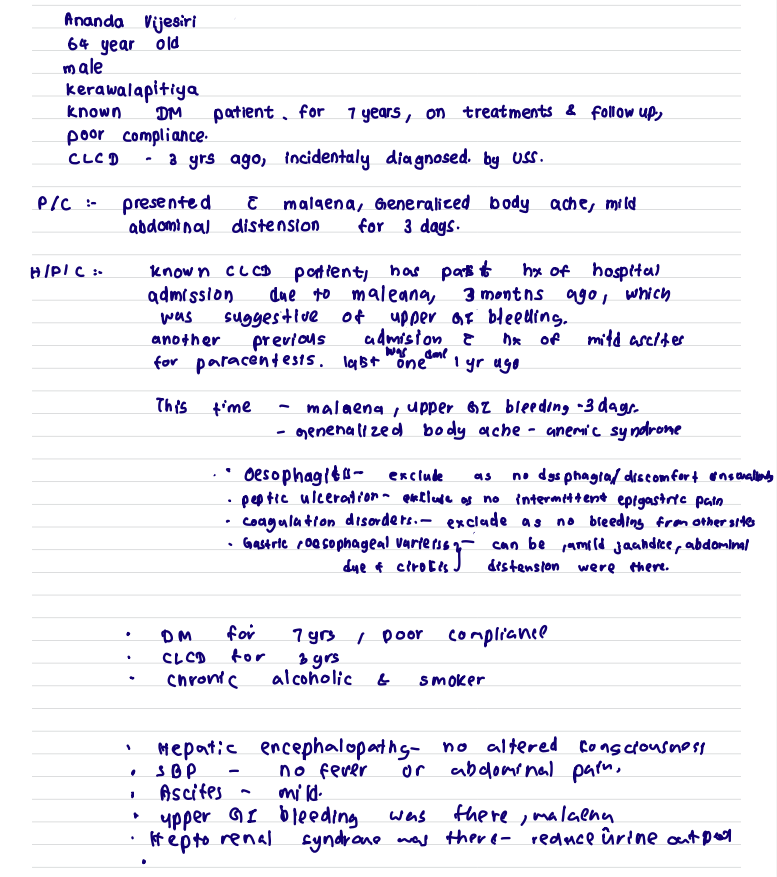 Ananda Vijesiri
64 year old
male
kerawalapitiya
known DM patient. for 7 years, on treatments & follow up,
poor compliance.
CLCD - 3 yrs ago, incidentaly diagnosed. by USS.
P/C :- presented c̄ malaena, Generaliced body ache, mild
abdominal distension for 3 days.
H/P/C :- known CLCD patient, has past hx of hospital
admission due to maleana, 3 months ago, which
was suggestive of upper GI bleeding.
another previous admision c̄ hx of mild ascites
for paracentesis. last one was done 1 yr ago
This time - malaena, upper GI bleeding - 3 days.
- Generalized body ache - anemic syndrome
• Oesophagitis - exclude as no dysphagia/ discomfort
• peptic ulceration - exclude as no intermittent epigastric pain
• coagulation disorders. - exclude as no bleeding from other sites
• Gastric / oesophageal varices } - can be, a mild jaundice, abdominal
due to cirosis } distension were there.
• DM for 7 yrs, poor compliance
• CLCD for 3 yrs
• chronic alcoholic & smoker
• Hepatic encephalopathy - no altered consciousness
• SBP - no fever or abdominal pain.
• Ascites - mild.
• upper GI bleeding was there, malaena
• Hepto renal syndrone was there - reduce urine output
•